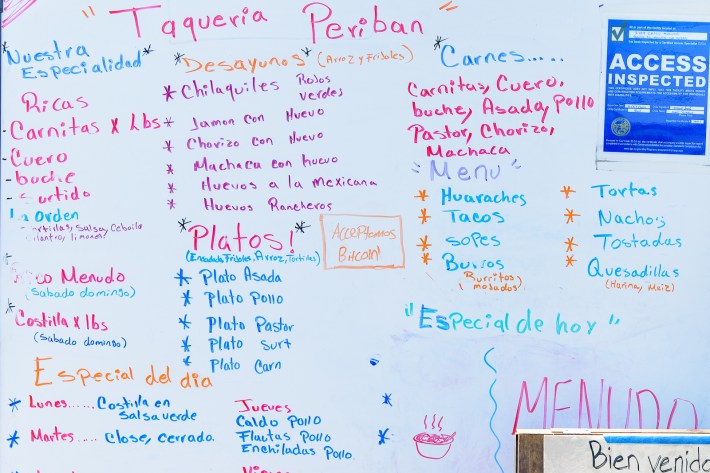 " Taqueria Periban "
*Nuestra Especialidad*
Ricas
- Carnitas x Lbs
- Cuero
- buche
- Surtido
La Orden
tortillas, Salsa, Cebolla
cilantro, limones
Menudo
(Sabado domingo)
*Costilla x lbs
(Sabado domingo)
*Desayunos* (Arroz y Frijoles)
* Chilaquiles Rojos verdes
* Jamon con Huevo
* Chorizo con Huevo
* Machaca con huevo
* Huevos a la Mexicana
* Huevos Rancheros
*Platos!*
(Ensalada Frijoles, Arroz, Tortillas)
* Plato Asada
* Plato Pollo
* Plato Pastor
* Plato Surt
* Plato Carn
Acceptamos
Bitcoin!
*Carnes.....
Carnitas, Cuero,
buche, Asada, Pollo
Pastor, Chorizo,
Machaca
"Menu"
* Huaraches
* Tacos
* Sopes
* Burros
(Burritos mojados)
* Tortas
* Nachos
* Tostadas
* Quesadillas
(Harina, Maiz)
"Especial de hoy"
MENUDO
Bien venido
Especial del dia
* Lunes..... Costilla en
Salsa verde
* Martes.... Close, cerrado.
Jueves
Caldo Pollo
Flautas Pollo
Enchiladas Pollo
ACCESS
INSPECTED